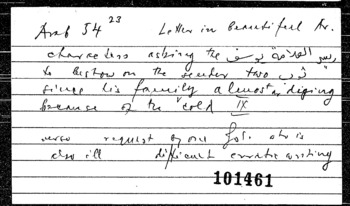 Arab 54 23 Letter in beautiful Ar.
characters asking the رئيس العلامة يوسف
to bestow on the sender two ثوب
since his family almost is dying
because of the cold IX
verso request by one Jos. who is
also ill difficult erratic writing
101461